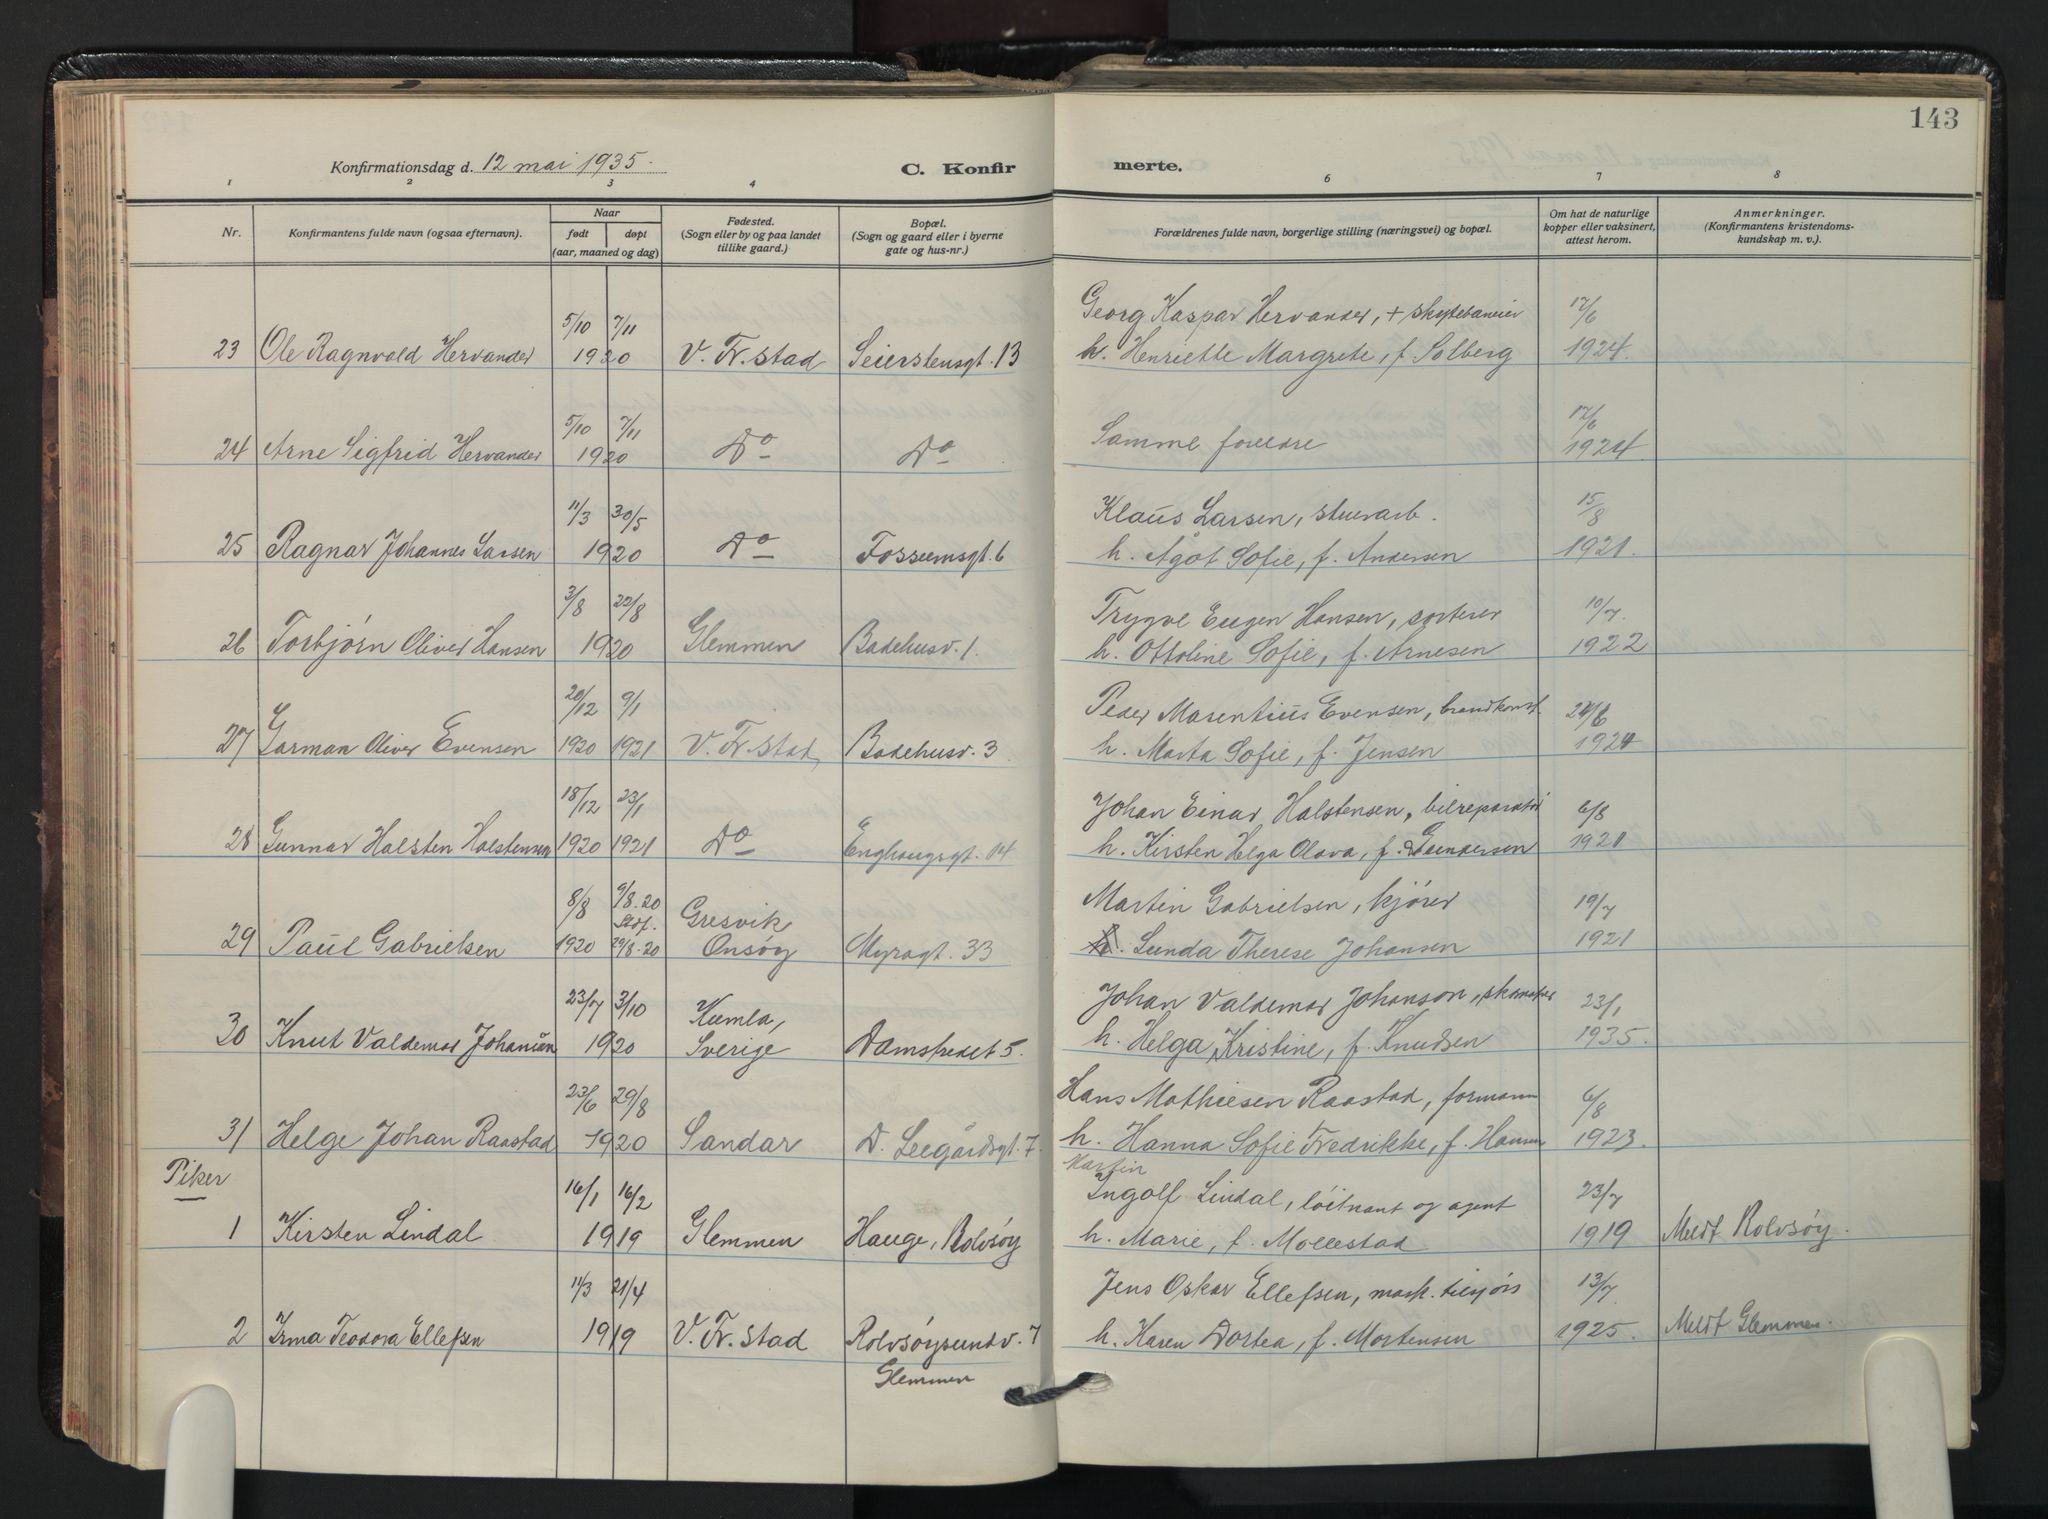 143
Konfirmationsdag d. 12 mai 1935.
C. Konfirmerte.
1 2 3 4 5 6 7 8
Nr.
Konfirmantens fulde navn (ogsaa efternavn).
Naar
født døpt
(aar, maaned og dag)
Fødested.
(Sogn eller by og paa landet
tillike gaard.)
Bopæl.
(Sogn og gaard eller i byerne
gate og hus-nr.)
Forældrenes fulde navn, borgerlige stilling (næringsvei) og bopæl.
Om hat de naturlige
kopper eller vaksinert,
attest herom.
Anmerkninger.
(Konfirmantens kristendoms-
kundskap m. v.).
5/10 7/11 Georg Kaspar Hervander, + skytebaneier 17/6
23 Ole Ragnvald Hervander 1920 V. Fr.stad Seierstensgt. 13 h. Henriette Margrete, f. Solberg 1924.
5/10 7/11 17/6
24 Arne Sigfrid Hervander 1920 Do Do Samme foreldre 1924
11/3 30/5 Klaus Larsen, stuerarb. 15/8
25 Ragnar Johannes Larsen 1920 Do Fossumsgt. 6 h. Ågot Sofie, f. Andersen 1921.
3/8 22/8 Trygve Eugen Hansen, sorterer 10/7.
26 Torbjørn Oliver Hansen 1920 Glemmen Badehusv. 1. h. Ottoline Sofie, f. Arnesen 1922
20/12 9/1 Peder Marentius Evensen, brandkonst. 24/6
27 Garman Oliver Evensen 1920 1921 V. Fr.stad Badehusv. 3 h. Marta Sofie, f. Jensen 1924
18/12 23/1 Johan Einar Halstensen, bilreparatør 6/8
28 Gunnar Halsten Halstensen 1920 1921 Do Enghaugsgt. 14 h. Kirsten Helga Olava, f. Gundersen 1921
8/8 9/8.20 Martin Gabrielsen, kjører 19/7
Stdf. Gresvik
29 Paul Gabrielsen 1920 29/8.20 Onsøy Myragt. 33 h. Lunda Therese Johansen 1921
23/7 3/10 Kumla, Johan Valdemar Johanson, skomaker 23/1
30 Knut Valdemar Johanson 1920 Sverige Damstredet 5. h. Helga Kristine, f. Knudsen 1935.
23/6 29/8 Hans Mathiesen Raastad, formann 6/8
31 Helge Johan Raastad 1920 Sandar D. Leegårdsgt. 7. h. Hanna Sofie Fredrikke, f. Hansen 1923.
Piker
Martin
16/1 16/2 Ingolf Lindal, løitnant og agent 23/7
1 Kirsten Lindal 1919 Glemmen Hauge, Rolvsøy h. Marie, f. Mollestad 1919 Meldt Rolvsøy.
11/3 21/4 Jens Oskar Ellefsen, mask. tilsyn 13/7
2 Irma Teodora Ellefsen 1919 V. Fr.stad Rolvsøysundv. 7 h. Karen Dortea, f. Mortensen 1925. Meldt Glemmen.
Glemmen